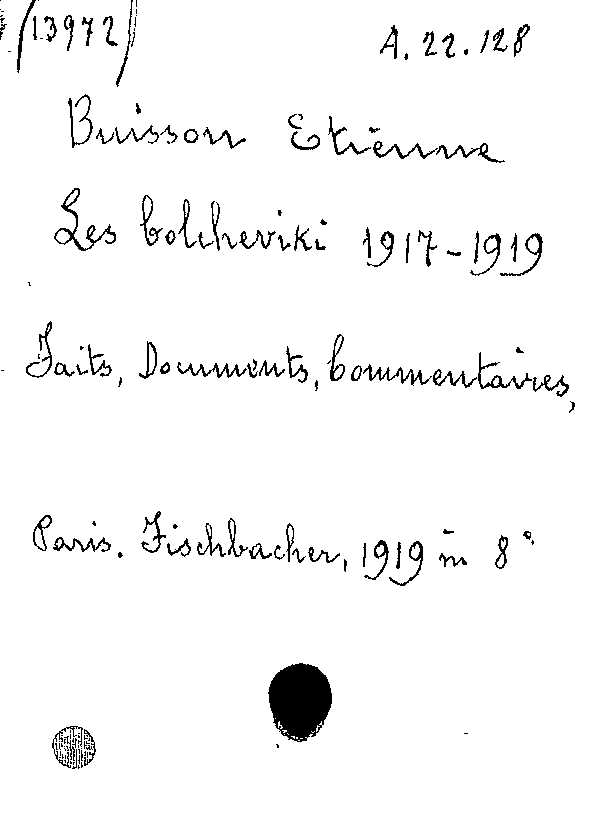 (13972)
A. 22. 128
Buisson Etienne
Les bolcheviki 1917-1919
Faits, Documents, Commentaires,
Paris. Fischbacher, 1919 in 8°